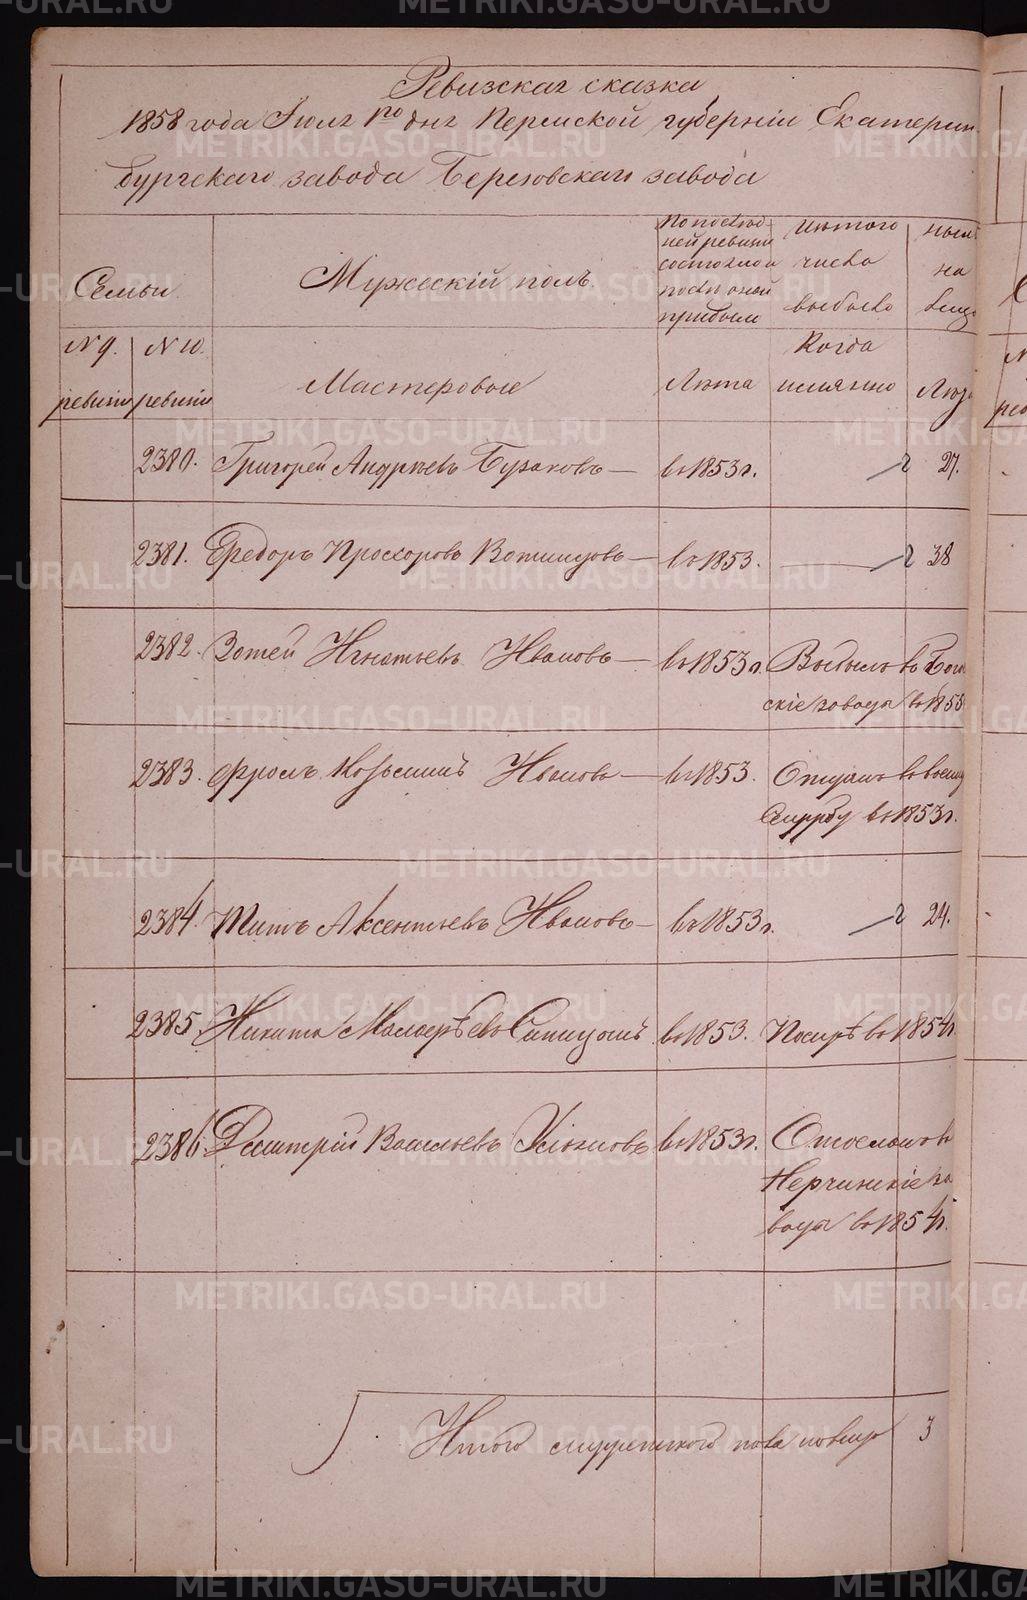 Ревизская сказка
1858 года Июля 1го дня Пермской губерніи Екатерин
бургскаго завода Березовскаго завода
Семьи
Мужескій полъ
По послед-
ней ревизіи
состояло и
после оной
прибыли
Изтого
числа
выбыло
ныне
на
лицо
№ 9.
ревизіи
№ 10.
ревизіи
Мастеровые
Лета
Когда
именно
Лета
2380. Григорей Андреевъ Бузаковъ — въ 1853 г. 27.
2381. Федоръ Прохоровъ Вотинцовъ — въ 1853. — 38
2382. Зотей Игнатьевъ Ивановъ — въ 1853 г. Выбылъ въ Бого
скіе заводы въ 1855
2383. Фролъ Козьминъ Ивановъ — въ 1853. Отданъ въ военную
Службу въ 1853 г.
2384. Титъ Аксентьевъ Ивановъ — въ 1853 г. 24.
2385. Никита Малаѳѣевъ Синицынъ въ 1853. Помиръ въ 1854 г.
2386. Дмитрій Васильевъ въ 1853 г. Отосланъ въ
Нерчинскіе за
воды въ 1854 г.
Итого мужескаго пола налицо 3
METRIKI.GASO-URAL.RU